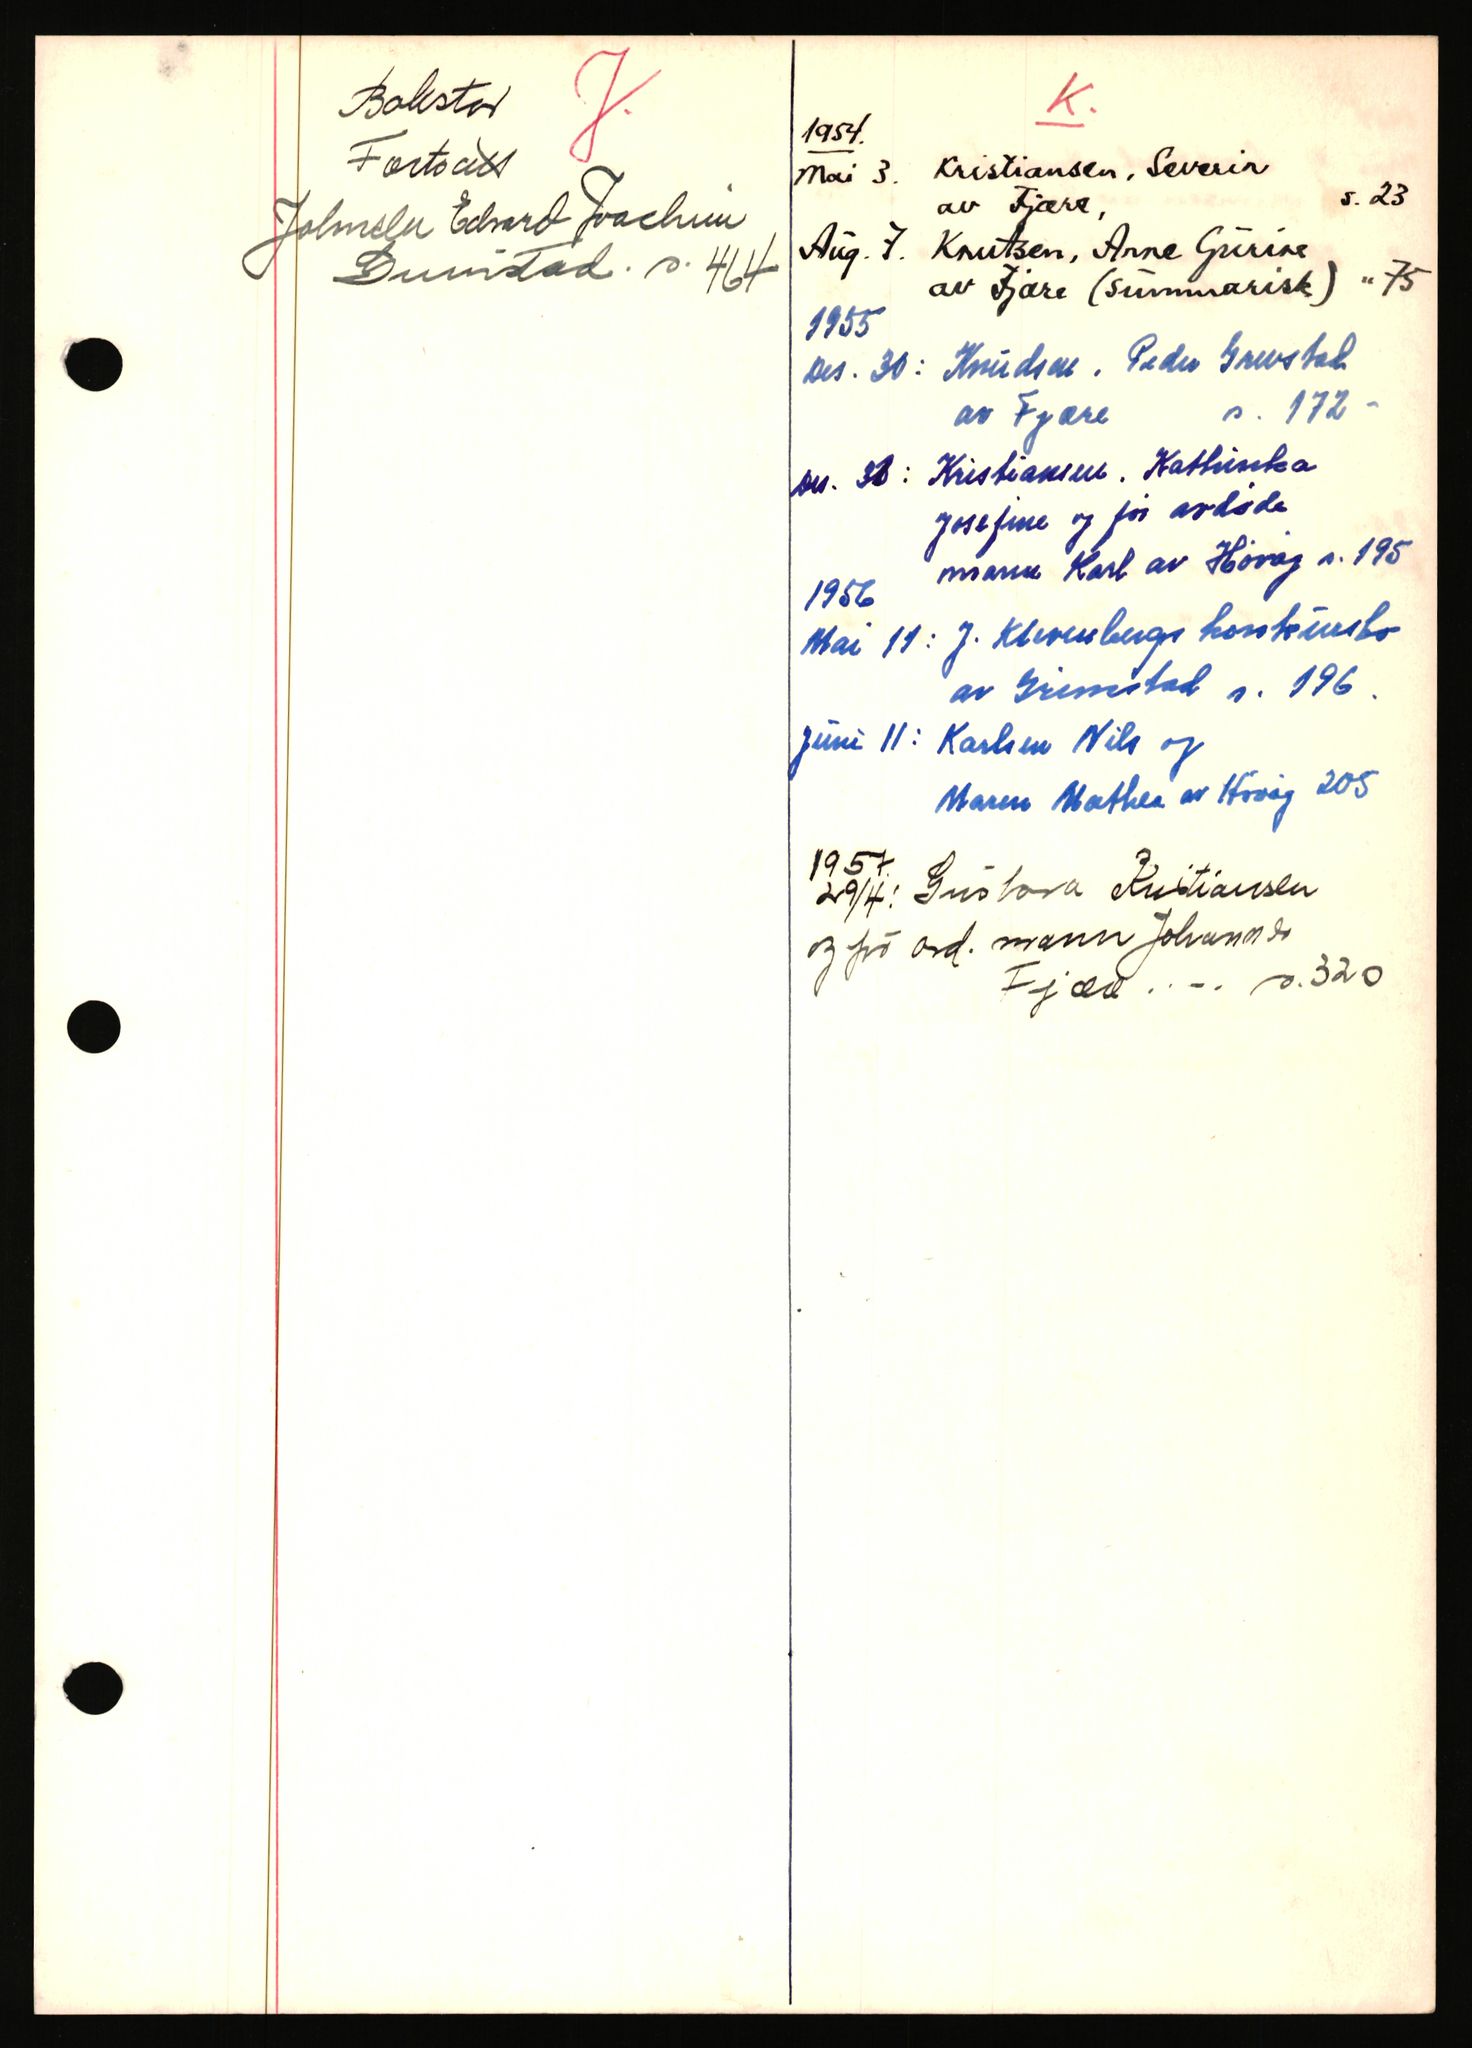 J.
Bokstav
Fortsatt
Edvard Joachim
s. 464
K.
1954.
Mai 3. Kristiansen, Severin
av Fjære, s. 23
Aug. 7. Knutsen, Anne Gurine
av Fjære (summarisk) " 75
1955
Des. 30: Knudsen, Peder Grevstad
av Fjære s. 172 -
Des. 30: Kristiansen, Kathinka
Josefine og før avdøde
mann Karl av Høvåg s. 195
1956
Mai 11: J. Klevenbergs konkursbo
av Grimstad s. 196.
Juni 11: Karlsen Nils og
Maren Mathea av Høvåg 205
1957.
29/4: Gustava Kristiansen
og før avd. mann Johannes
Fjære . . - . s. 320